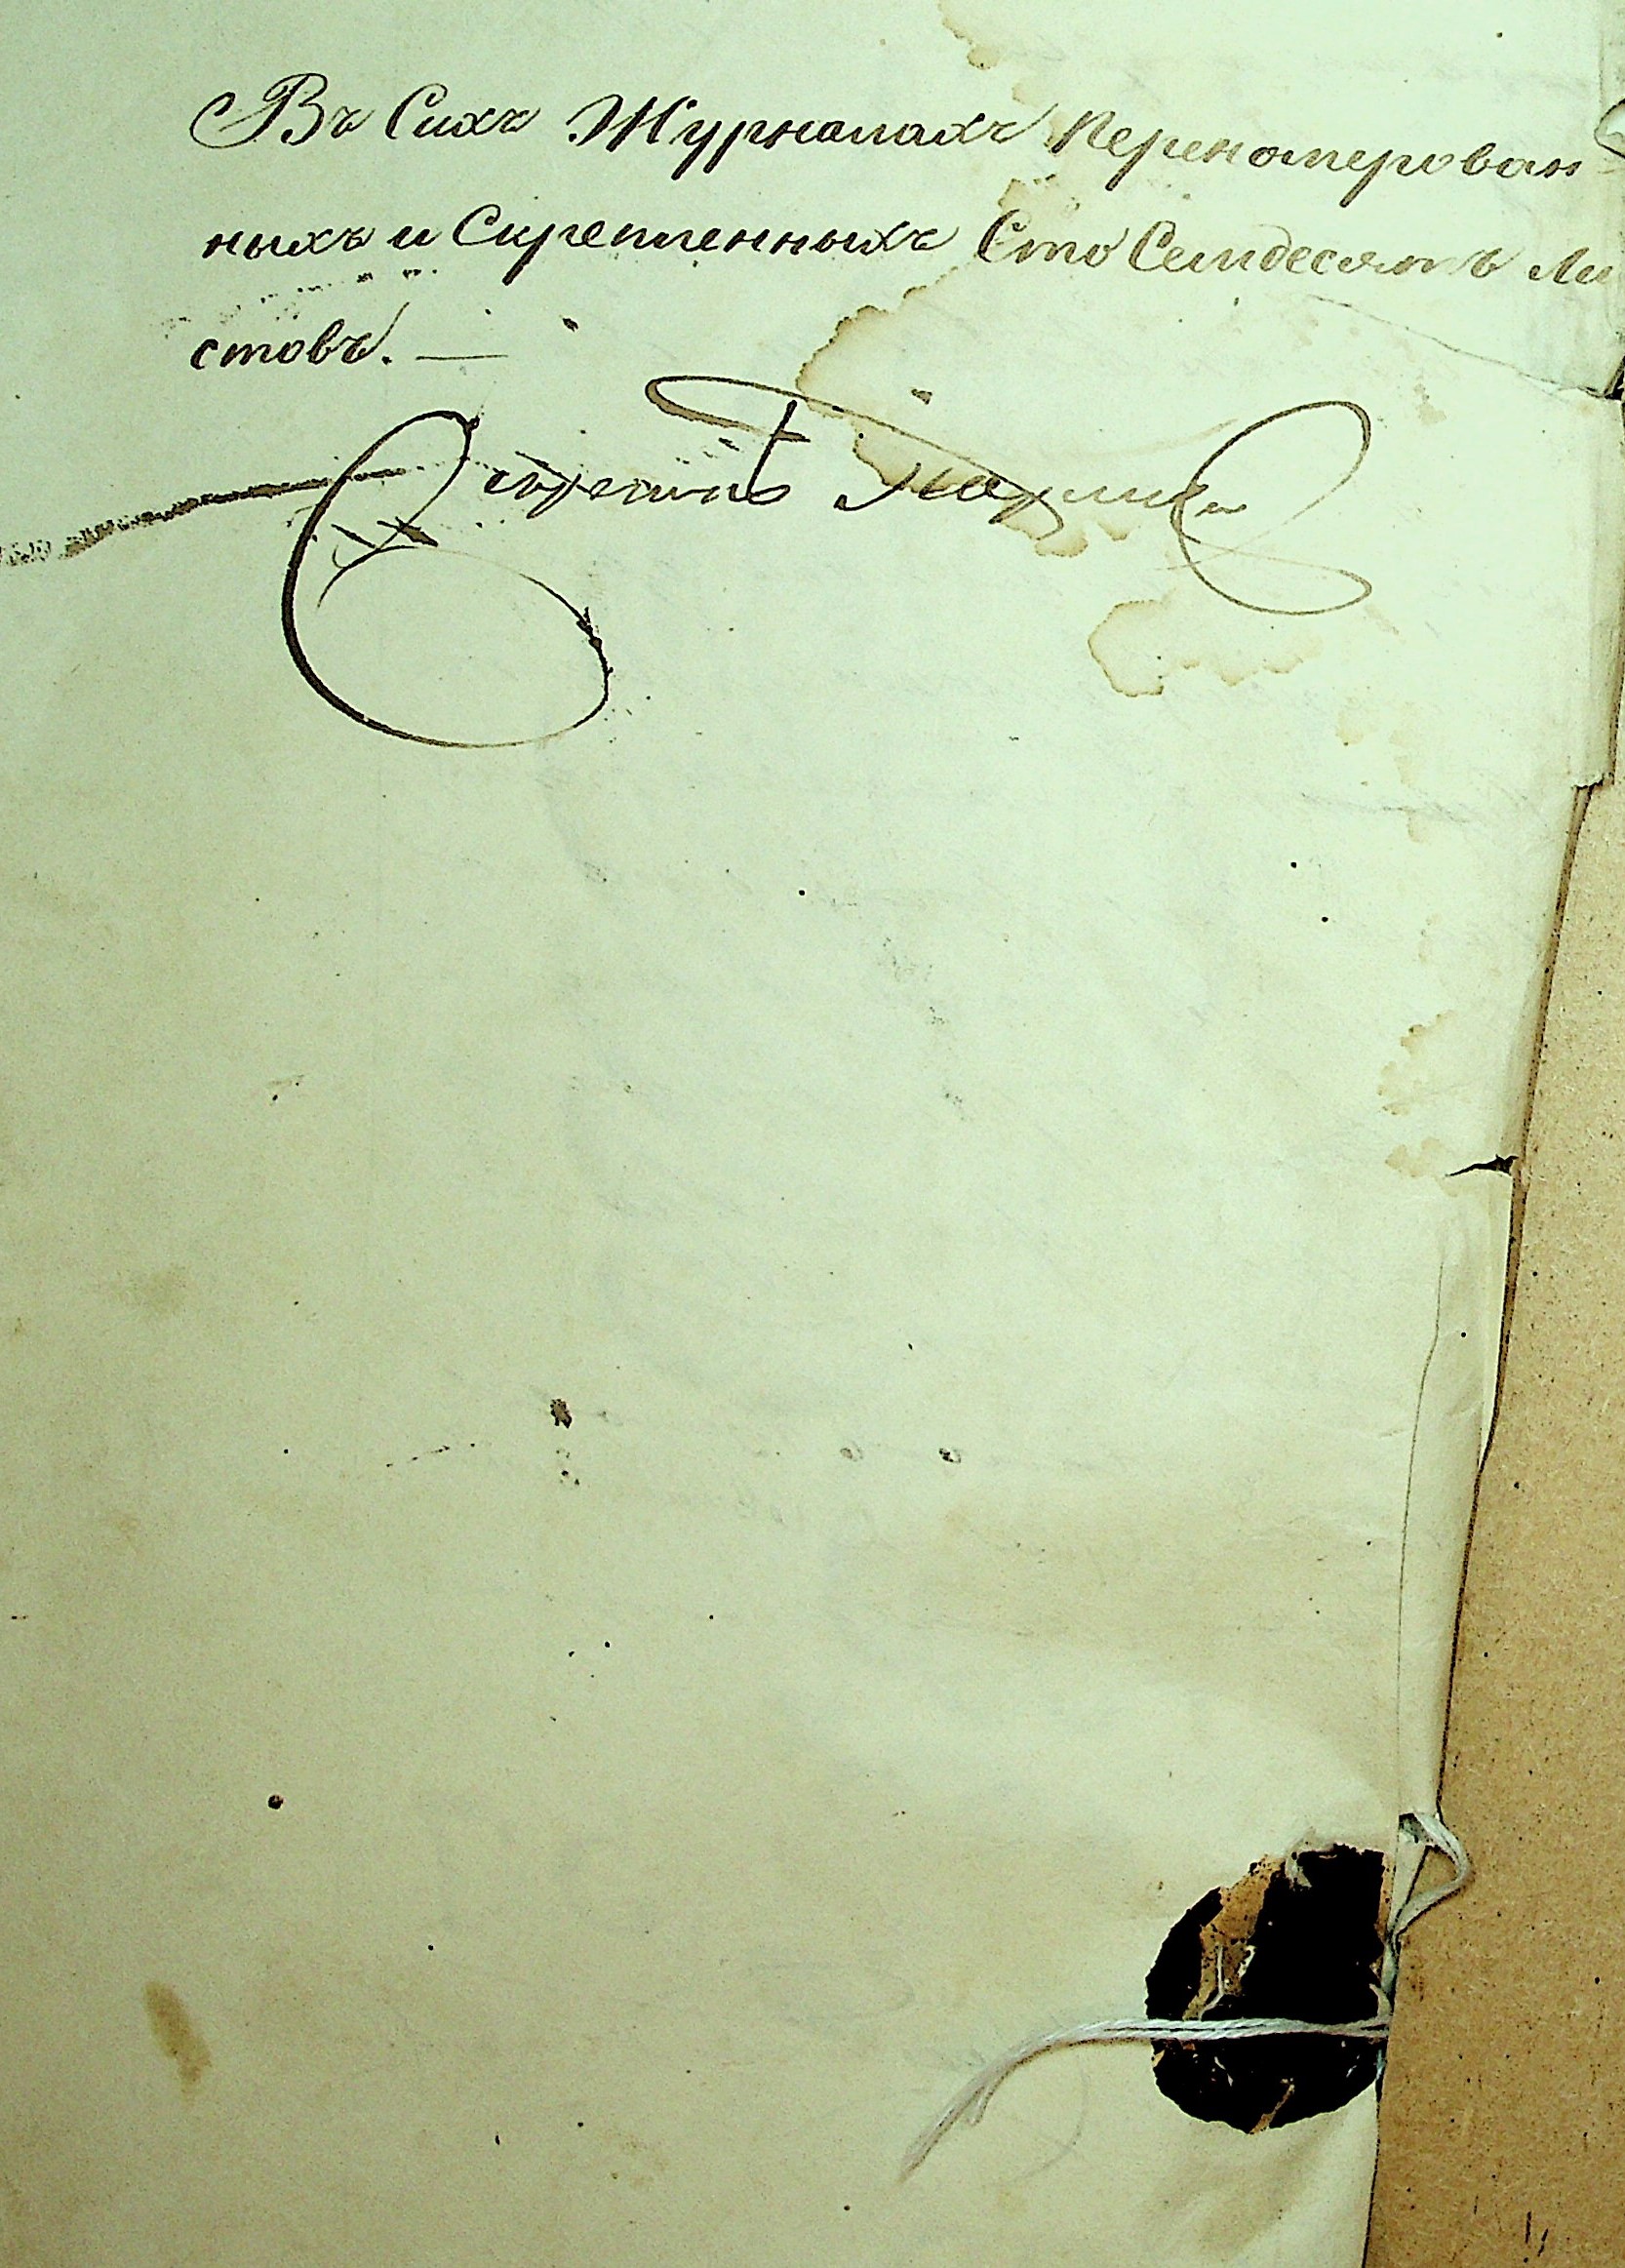 Въ Сихъ Журналахъ Переномерован
ныхъ и Скрепленныхъ Сто Семдесятъ Ли
стовъ. —
Секретарь